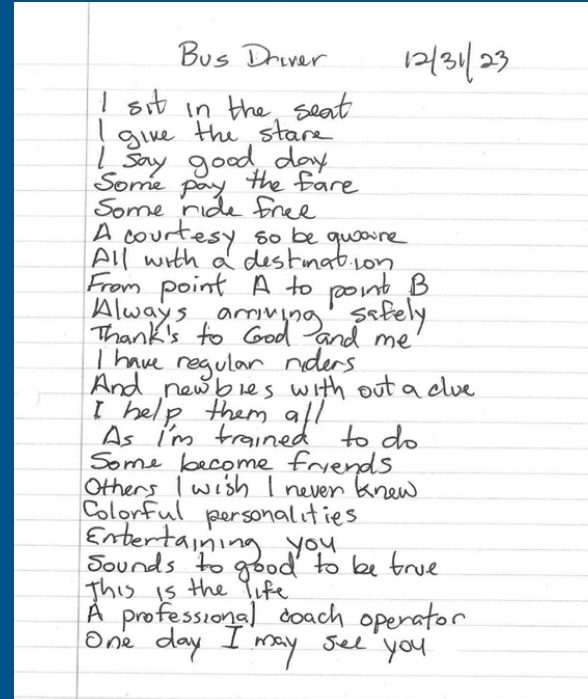 Bus Driver 12/31/23
I sit in the seat
I give the stare
I say good day
Some pay the fare
Some ride free
A courtesy so be
All with a destination
From point A to point B
Always arriving safely
Thank's to God and me
I have regular riders
And newbies with out a clue
I help them all
As i'm trained to do
Some become friends
Others I wish I never knew
Colorful personalities
Entertaining you
Sounds to good to be true
This is the life
A professional coach operator
One day I may see you